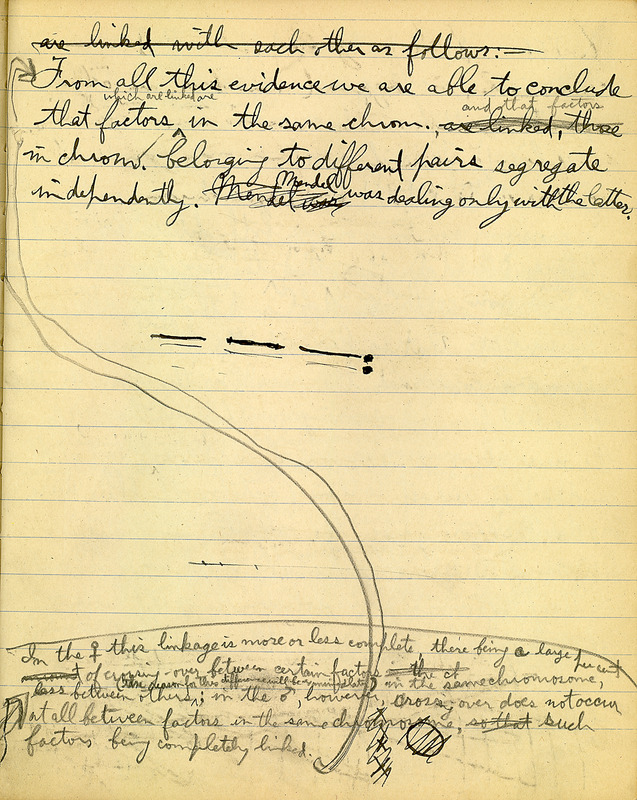 are linked with each other as follows:—
From all this evidence we are able to conclude
which are linked are
and that factors
that factors in the same chrom., are linked, those
in chrom. belonging to different pairs segregate
independently. Mendel was Mendel was dealing only with the latter.
In the ♀ this linkage is more or less complete, there being a large percent
amount of crossing-over between certain factors in the same chromosome,
The reason for this difference will be
less between others; in the ♂, however, crossing over does not occur
at all between factors in the same chromosome, so that such
factors being completely linked.